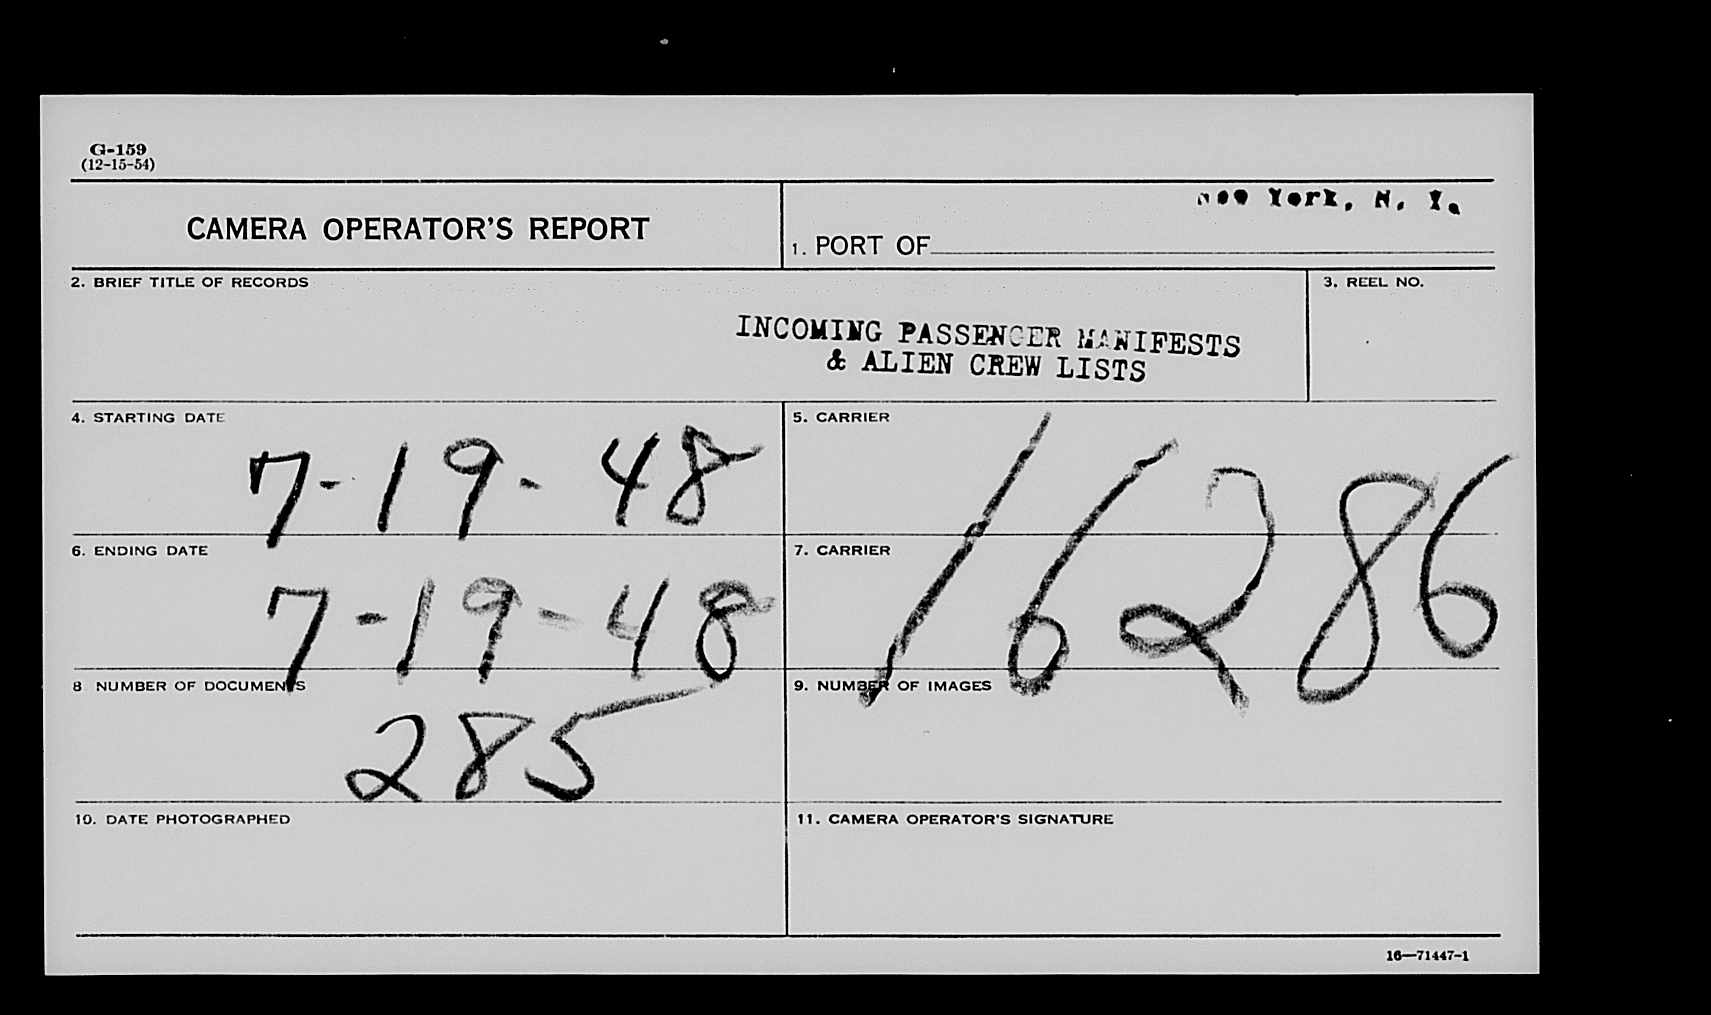 G-159
(12-15-54)
CAMERA OPERATOR'S REPORT
New York, N. Y.
1. PORT OF
2. BRIEF TITLE OF RECORDS
INCOMING PASSENGER MANIFESTS
& ALIEN CREW LISTS
3. REEL NO.
4. STARTING DATE
7-19-48
5. CARRIER
16286
6. ENDING DATE
7-19-48
7. CARRIER
8 NUMBER OF DOCUMENTS
285
9. NUMBER OF IMAGES
10. DATE PHOTOGRAPHED
11. CAMERA OPERATOR'S SIGNATURE
16—71447-1